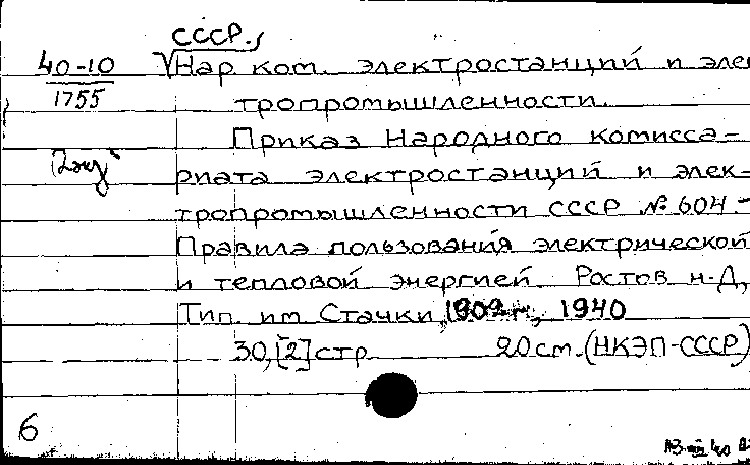 СССР.
40-10
1755
Нар. ком. электростанций и элек
тропромышленности.
Приказ Народного комисса-
риата электростанций и элек-
тропромышленности СССР № 604.-
Правила пользования электрической
и тепловой энергией. Ростов н-Д,
Тип. им Стачки 1902 г., 1940
30,[2] стр 20 cm. (НКЭП-СССР)
6